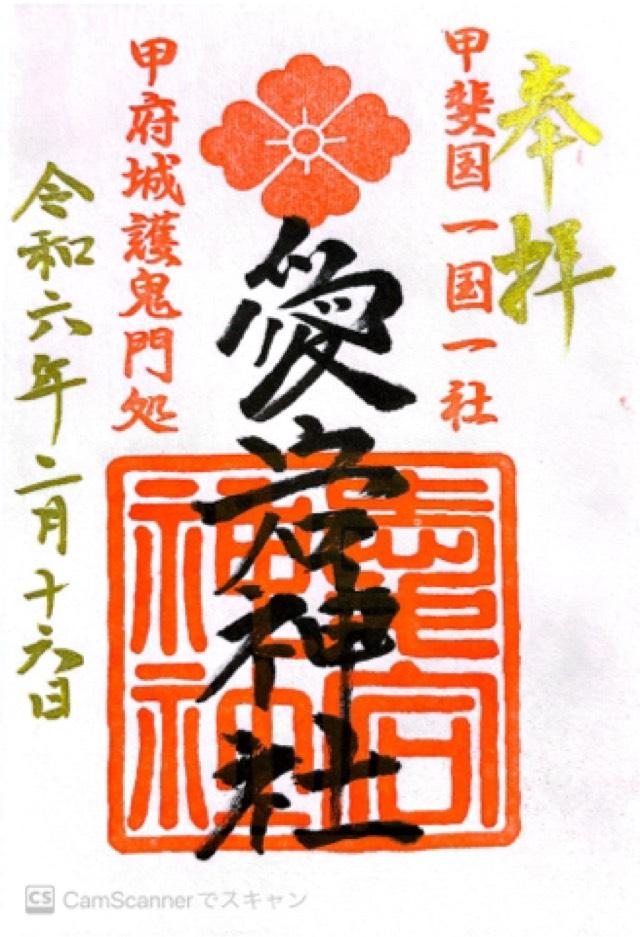 奉拝
甲斐国一国一社
愛宕神社
甲府城護鬼門処
令和六年二月十六日
CS CamScannerでスキャン